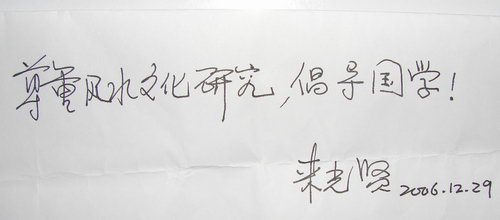 尊重风水文化研究,倡导国学!
来光贤 2006.12.29